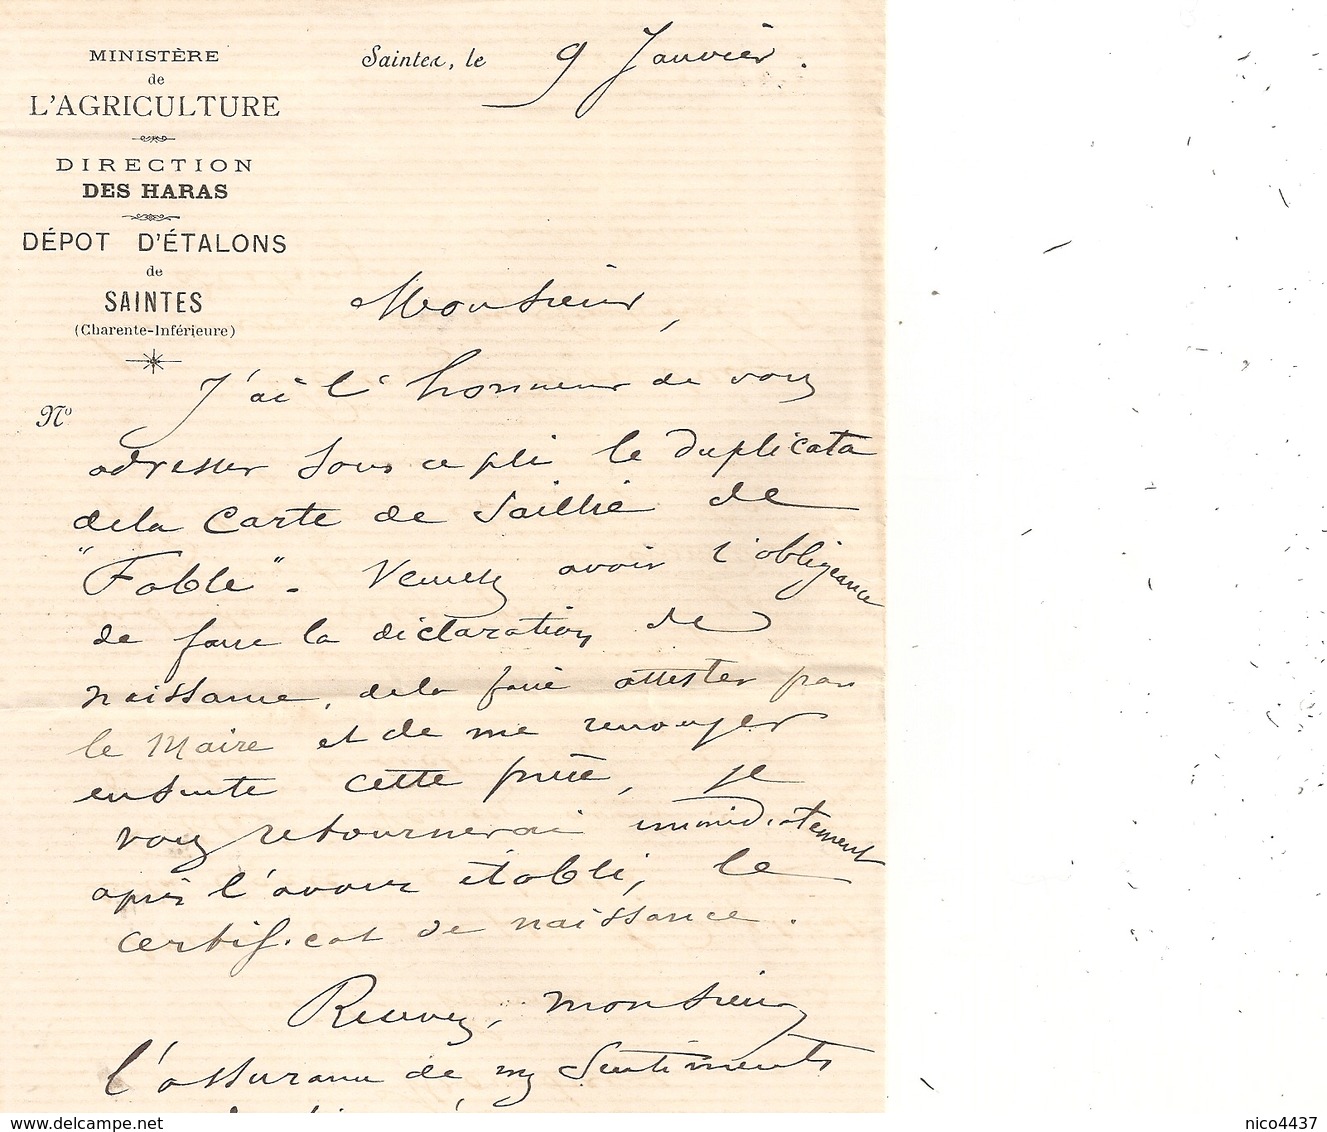 MINISTÈRE
de
L'AGRICULTURE
DIRECTION
DES HARAS
DÉPOT D'ÉTALONS
de
SAINTES
(Charente-Inférieure)
No
Saintes, le 9 Janvier.
Monsieur,
J'ai l'honneur de vous
adresser sous ce pli le duplicata
de la Carte de Saillie de
"Fable". Veuillez avoir l'obligeance
de faire la déclaration de
naissance, de la faire attester par
le Maire et de me renvoyer
ensuite cette pièce, je
vous retournerai immédiatement
après l'avoir établi, le
certificat de naissance.
Recevez, monsieur
l'assurance de mes Sentiments
my.delcampe.net
nico4437